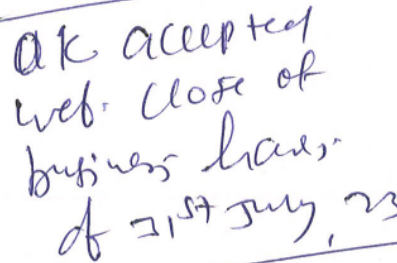 ok accepted
wef. Close of
business hours.
of 31st July, 23